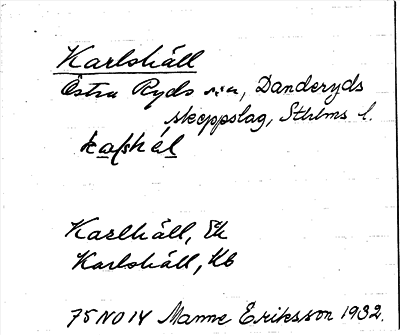 Karlshäll
Östra Ryds sn, Danderyds
skeppslag, Sthlms l.
Karlhäll, Ek
Karlshäll, Kb
75 NO 14 Manne Eriksson 1932.